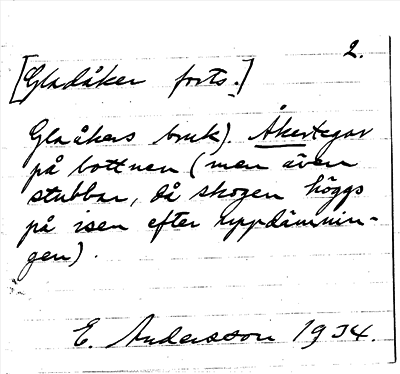 2.
[Gladåker forts.]
Glaåkers bruk). Åkertegar
på bottnen (men även
stubbar, då skogen höggs
på isen efter uppdämnin-
gen).
E. Andersson 1934.